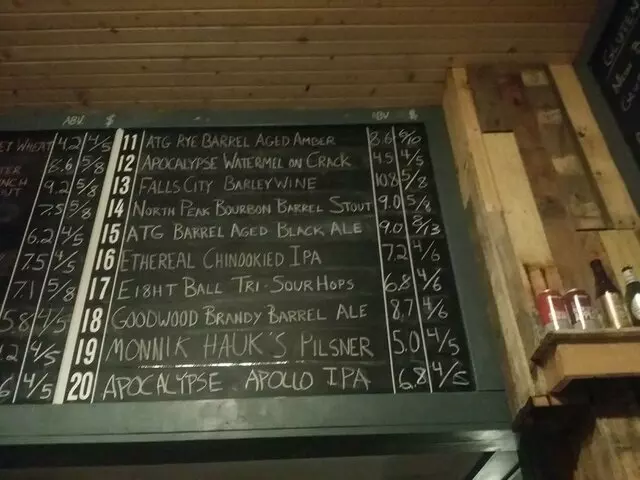 ABV. $ ABV $
WHEAT 4.2 4/5 11 ATG RYE BARREL AGED AMBER 8.6
8.6 5/8 12 APOCALYPSE WATERMELON CRACK 4.5 4/5
9.2 5/8 13 FALLS CITY BARLEYWINE 5/8
7.5 5/8 14 NORTH PEAK BOURBON BARREL STOUT 9.0 5/8
6.2 4/5 15 ATG BARREL AGED BLACK ALE 9.0 8/13
7.5 4/5 16 ETHEREAL CHINOOKIED IPA 7.2 4/6
7.1 5/8 17 E18HT BALL TRI-SOUR HOPS 6.8 4/6
5.8 4/5 18 GOODWOOD BRANDY BARREL ALE 8.7 4/6
4/5 19 MONNIK HAUK'S PILSNER 5.0 4/5
4/5 20 APOCALYPSE APOLLO IPA 6.8 4/5